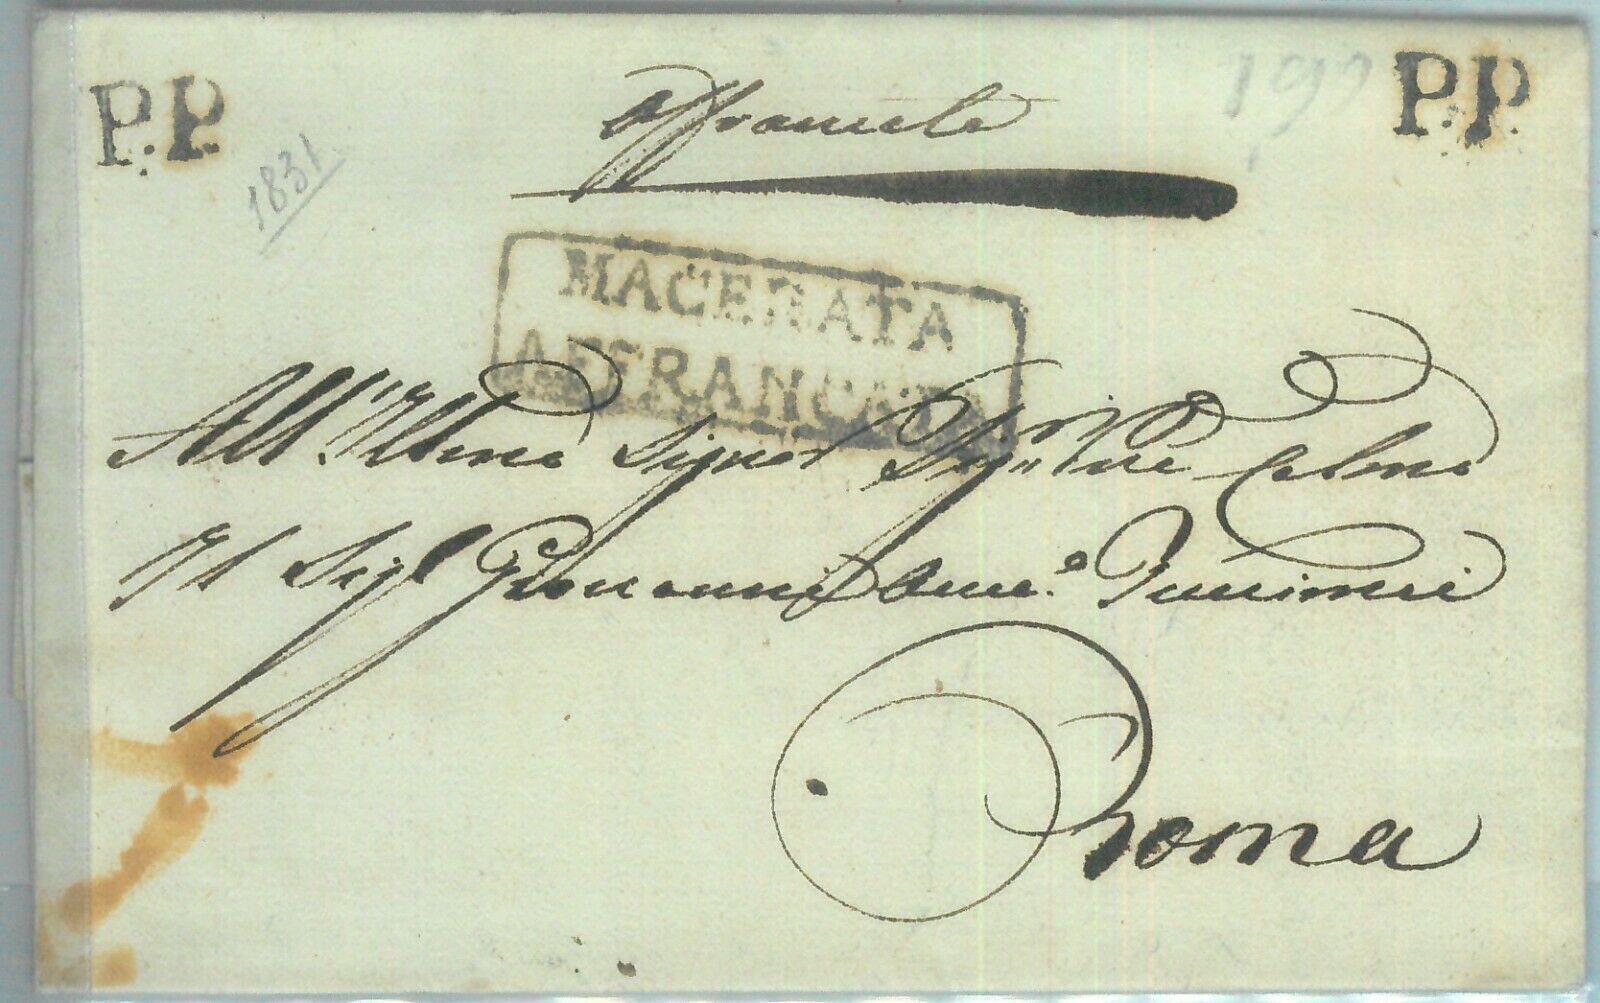 P.P.
P.P.
1831
Affrancata
MACERATA
AFFRANCATA
All'Illmo Signor Sig.r Pne Colmo
Il Sig.r Giovanni
Roma